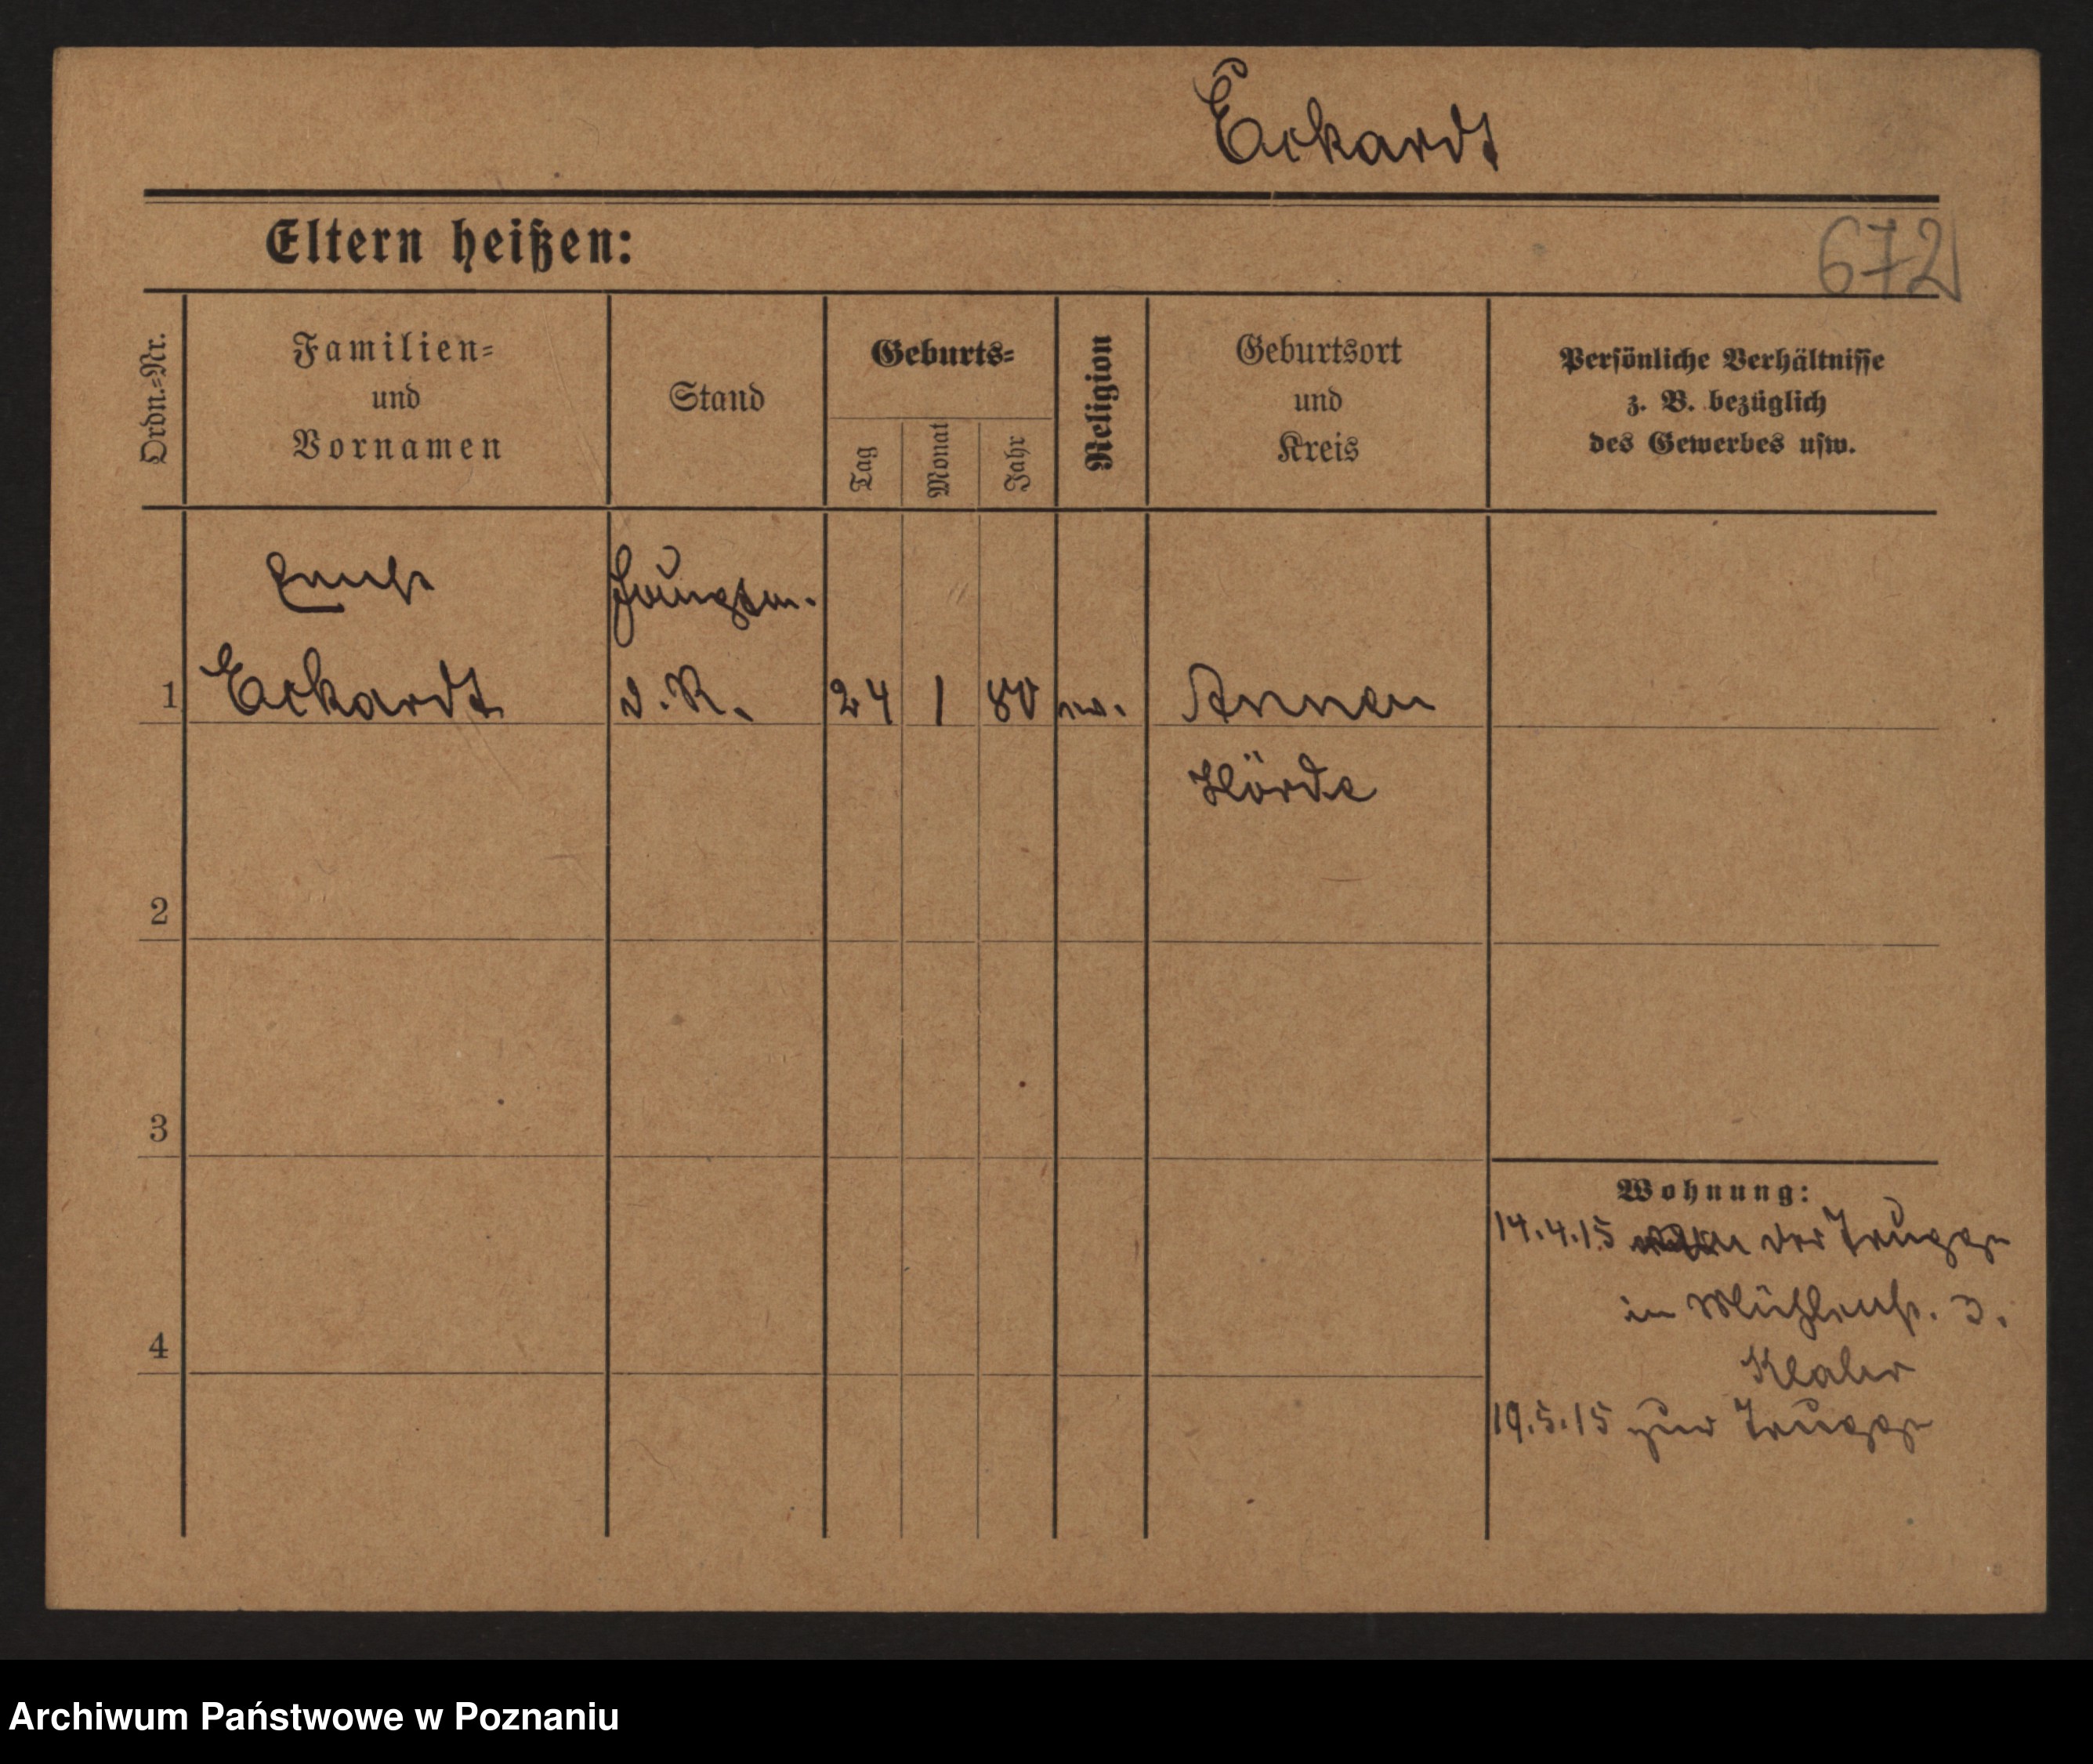 Eckardt
Eltern heißen:
672
Ordn.-Nr.
Familien-
und
Vornamen
Stand
Geburts-
Tag
Monat
Jahr
Religion
Geburtsort
und
Kreis
Persönliche Verhältnisse
z. B. bezüglich
des Gewerbes usw.
Ernst
Eckardt
d. R.
1
24 1 80
ev.
Annen
Hörde
2
3
4
Wohnung:
14.4.15 von der Truppe
in Mühlenstr. 3.
19.5.15 zur Truppe
Archiwum Państwowe w Poznaniu